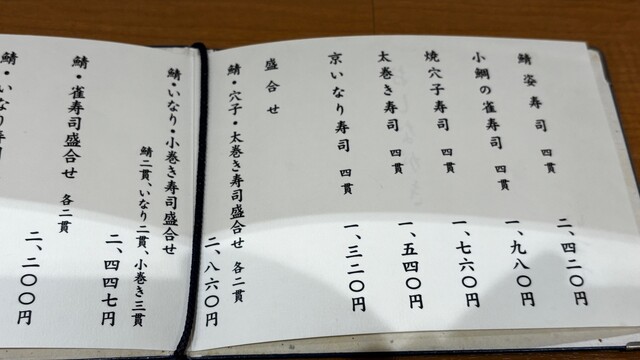 鯖姿寿司 四貫 二、四二〇円
小鯛の雀寿司 四貫 一、九八〇円
焼穴子寿司 四貫 一、七六〇円
太巻き寿司 四貫 一、五四〇円
京いなり寿司 四貫 一、三二〇円
盛合せ
鯖・穴子・太巻き寿司盛合せ 各二貫 二、八六〇円
鯖・いなり・小巻き寿司盛合せ
鯖二貫、いなり二貫、小巻き三貫 二、四四七円
鯖・雀寿司盛合せ 各二貫 二、二〇〇円
鯖・いなり寿司